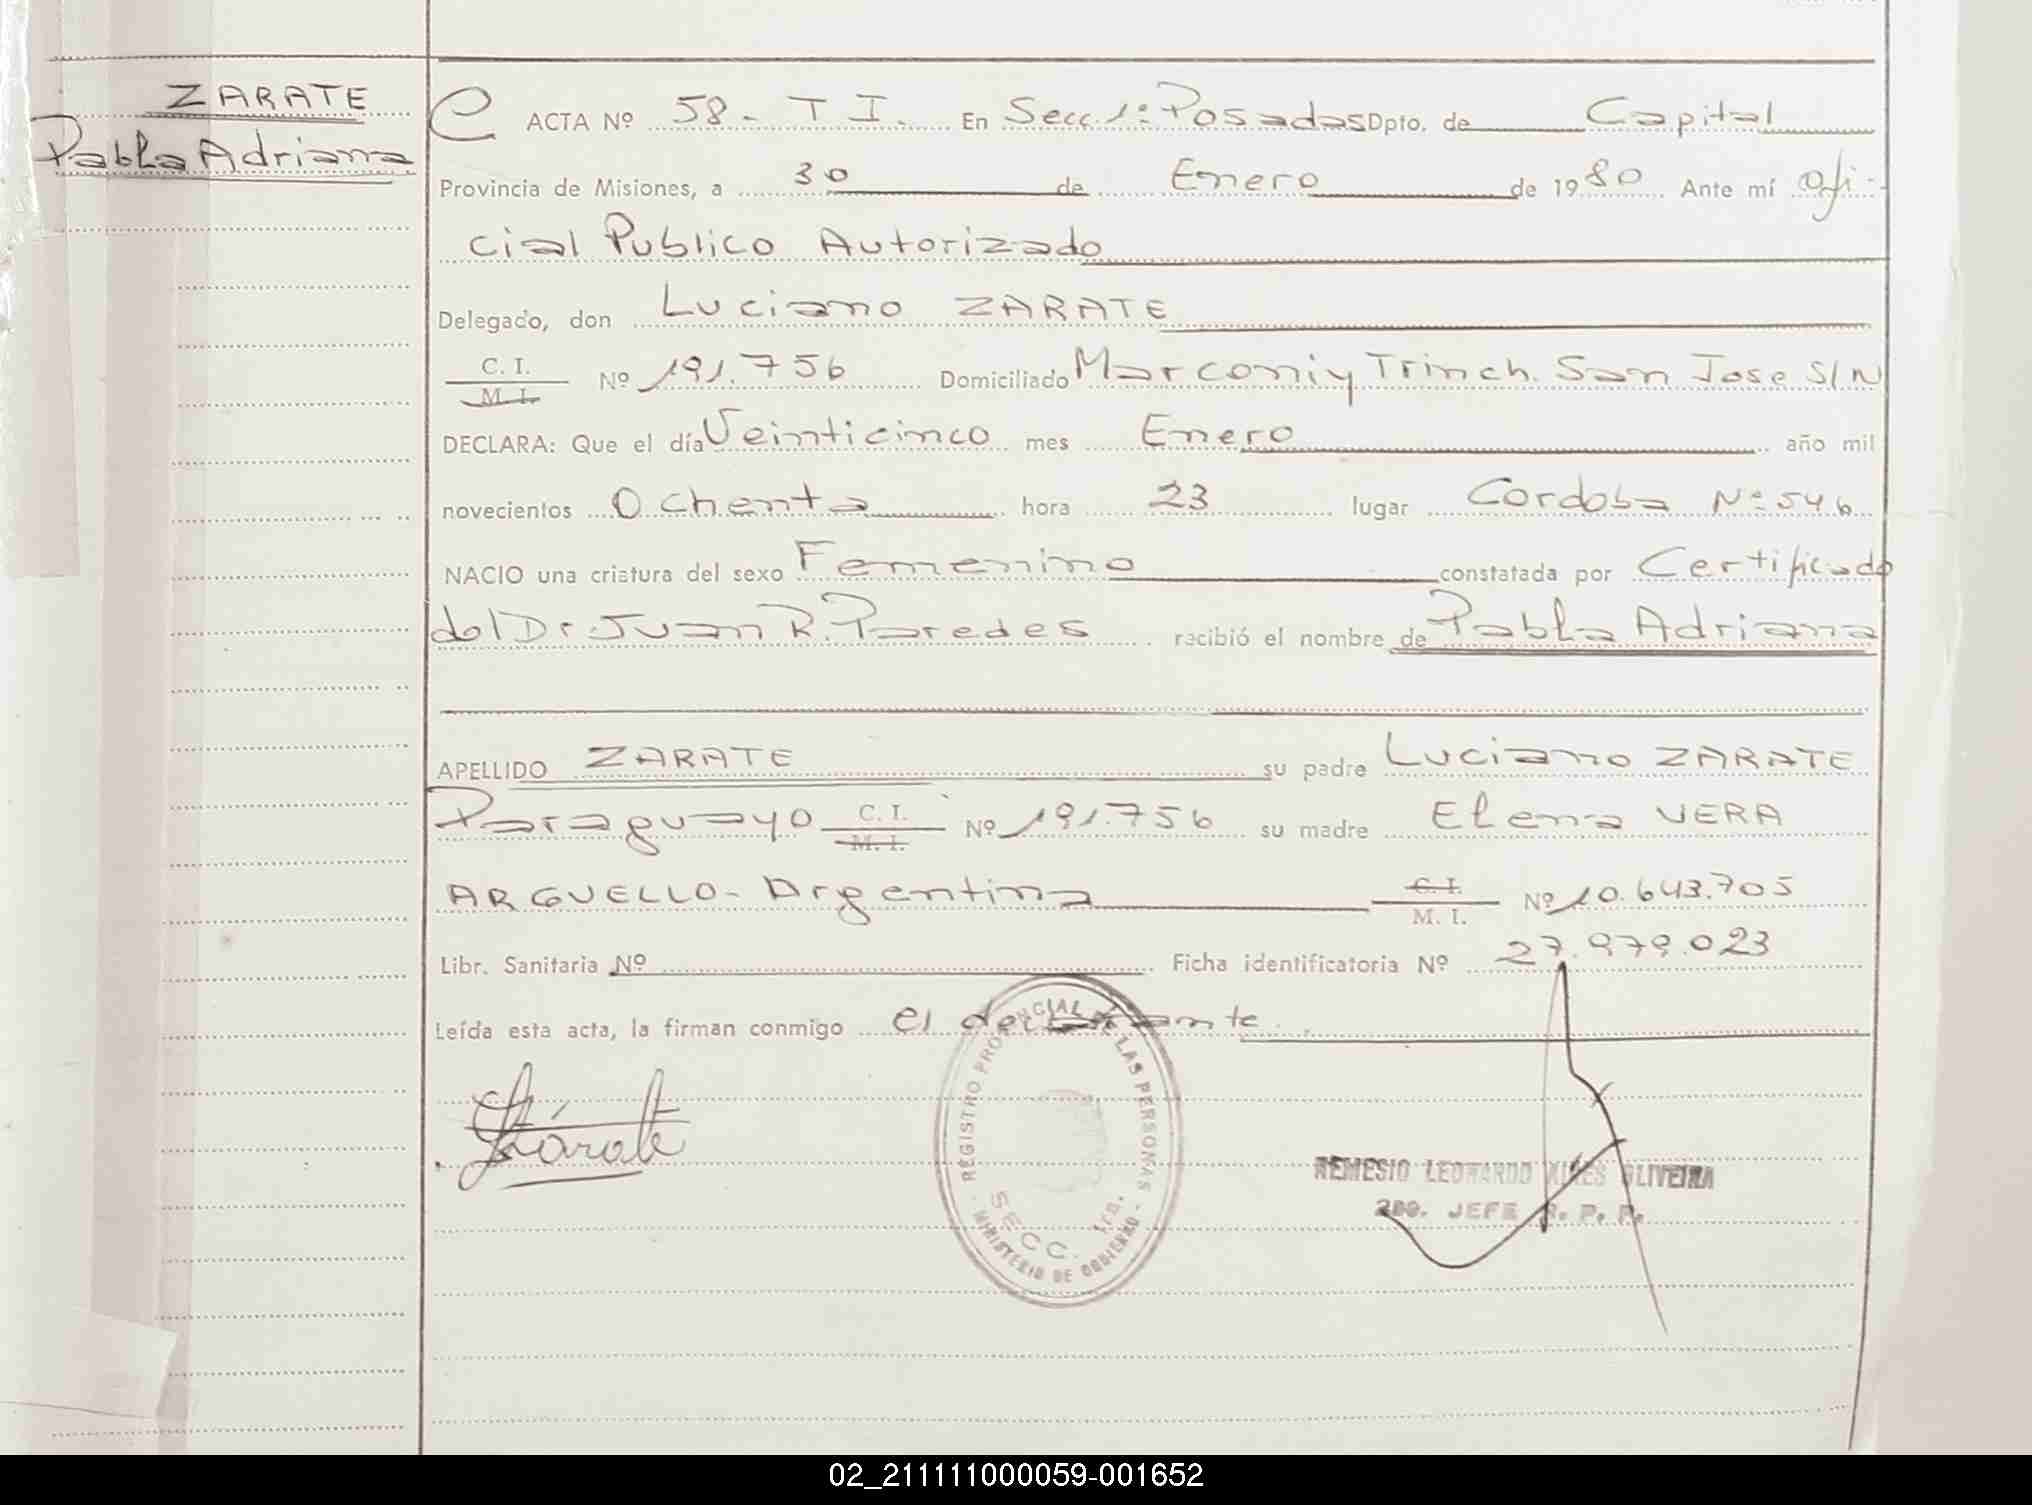 ZARATE
Pabla Adriana
ACTA Nº 58 - T I. En Secc. 1ª Posadas Dpto. de Capital
Provincia de Misiones, a 30 de Enero de 1980 Ante mí ofi-
cial Publico Autorizado
Delegado, don Luciano ZARATE
C. I.
M. I.
Nº 191.756 Domiciliado Marconi y Trinch. San Jose S/N
DECLARA: Que el día Veinticinco mes Enero año mil
novecientos Ochenta hora 23 lugar Cordoba Nº 546
NACIO una criatura del sexo Femenino constatada por Certificado
del Dr. Juan R. Paredes recibió el nombre de Pabla Adriana
APELLIDO ZARATE su padre Luciano ZARATE
Paraguayo C. I. M. I. Nº 191.756 su madre Elena VERA
ARGUELLO - Argentina C. I. M. I. Nº 10.643.705
Libr. Sanitaria Nº Ficha identificatoria Nº 27.979.023
Leída esta acta, la firman conmigo el declarante
Zárate
REGISTRO PROVINCIAL DE LAS PERSONAS
SECC. 1ra.
MINISTERIO DE GOBIERNO
REMESIO LEONARDO XIMES OLIVEIRA
2DO. JEFE R. P. P.
02_211111000059-001652